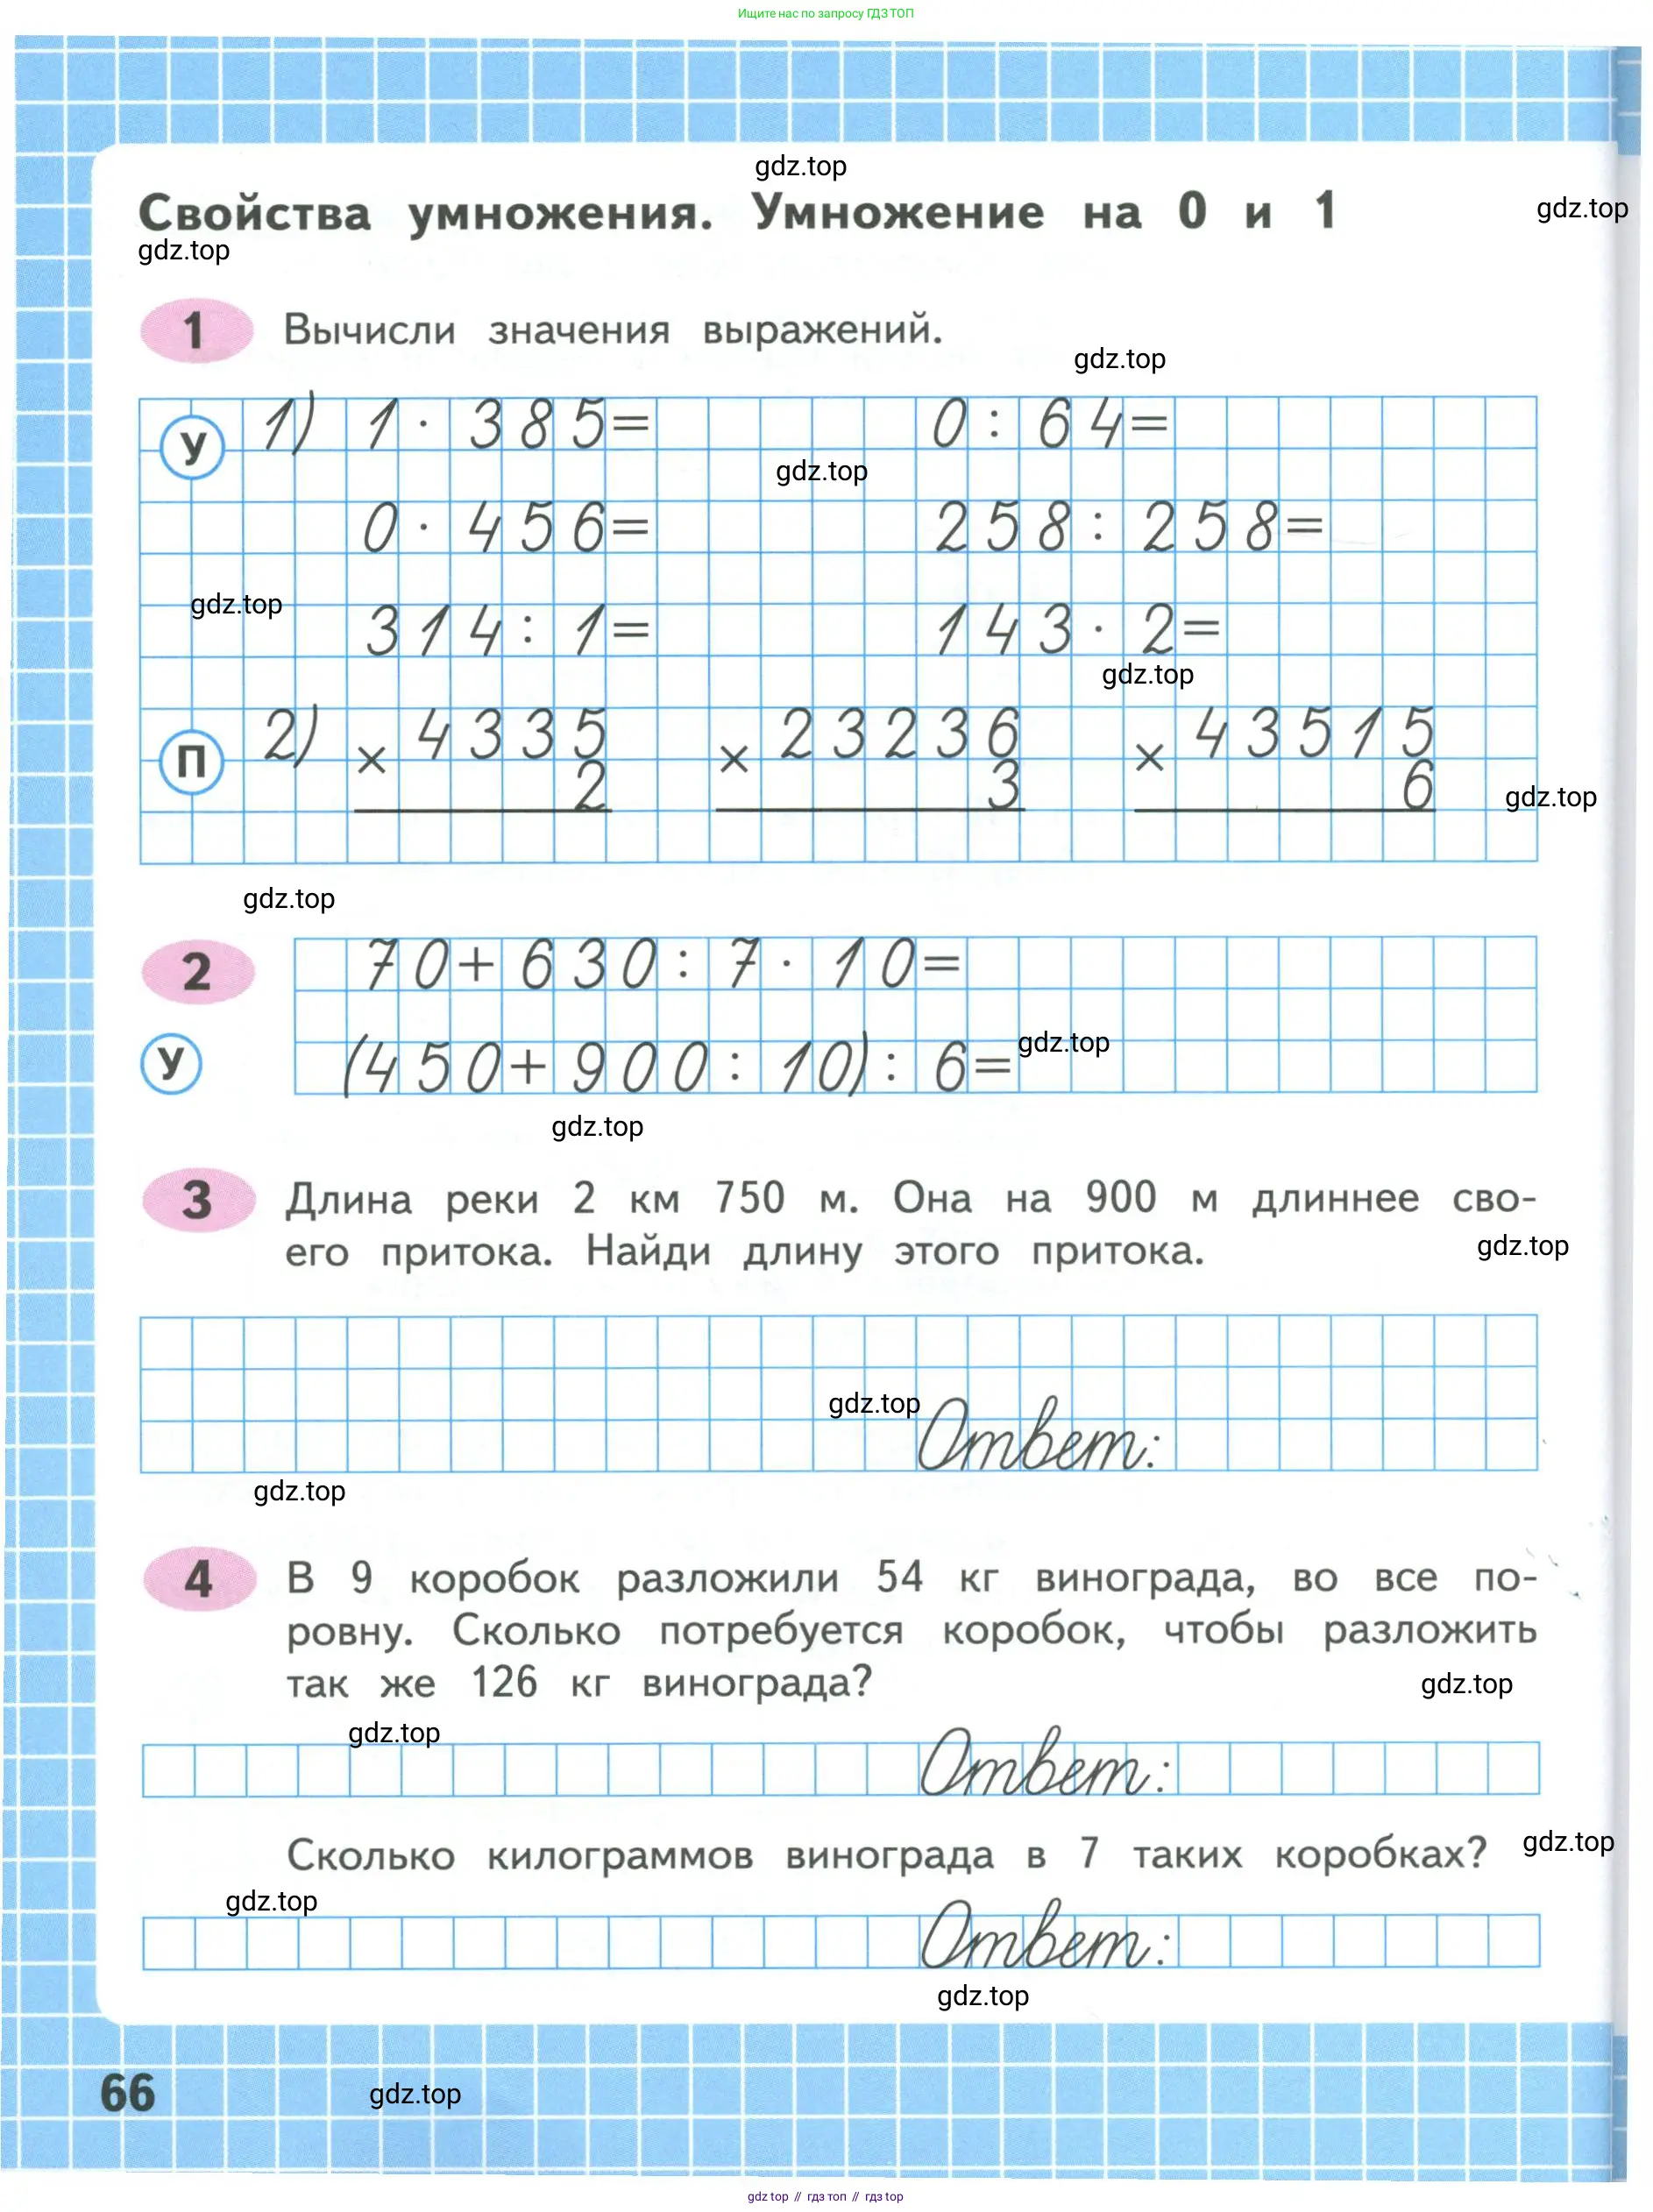 Ищите нас по запросу ГДЗ ТОП
gdz.top
Свойства умножения. Умножение на 0 и 1
gdz.top
gdz.top
1 Вычисли значения выражений.
gdz.top
У 1) 1 · 385= 0 : 64=
gdz.top
0 · 456= 258 : 258=
gdz.top
314 : 1= 143 · 2=
gdz.top
П 2) × 4335 × 23236 × 43515
2 3 6
gdz.top
gdz.top
2 70+630 : 7 · 10=
У (450+900 : 10) : 6=
gdz.top
gdz.top
3 Длина реки 2 км 750 м. Она на 900 м длиннее сво-
его притока. Найди длину этого притока.
gdz.top
gdz.top
Ответ:
gdz.top
4 В 9 коробок разложили 54 кг винограда, во все по-
ровну. Сколько потребуется коробок, чтобы разложить
так же 126 кг винограда?
gdz.top
gdz.top
Ответ:
Сколько килограммов винограда в 7 таких коробках?
gdz.top
gdz.top
Ответ:
gdz.top
66
gdz.top
gdz top // гдз топ // гдз top